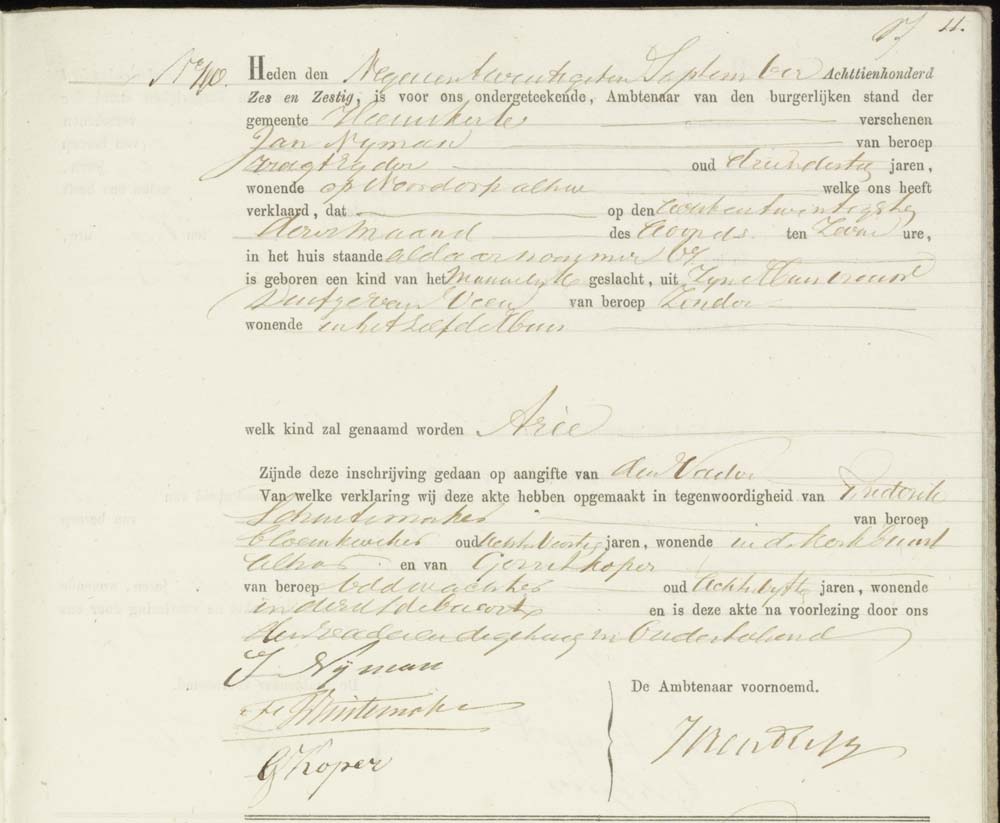 11.
No 40. Heden den Negenentwintigsten September Achttienhonderd
Zes en Zestig, is voor ons ondergeteekende, Ambtenaar van den burgerlijken stand der
gemeente Heemskerk verschenen
Jan Nyman van beroep
oud drieendertig jaren,
wonende op Noordorp alhier welke ons heeft
verklaard, dat op den
dezer Maand des avonds ten Zeven ure,
in het huis staande aldaar nommer 67
is geboren een kind van het Mannelijk geslacht, uit Zyne Huisvrouw
van Veen van beroep Zonder
wonende in het zelfde Huis
welk kind zal genaamd worden Arie
Zijnde deze inschrijving gedaan op aangifte van den Vader
Van welke verklaring wij deze akte hebben opgemaakt in tegenwoordigheid van Frederik
Schuitemaker van beroep
oud jaren, wonende in de Kerkbuurt
alhier en van Gerrit Koper
van beroep Veldwachter oud jaren, wonende
in dezelfde buurt en is deze akte na voorlezing door ons
den vader en de getuigen Onderteekend
J Nyman
De Ambtenaar voornoemd.
Fr Schuitemaker
G Koper